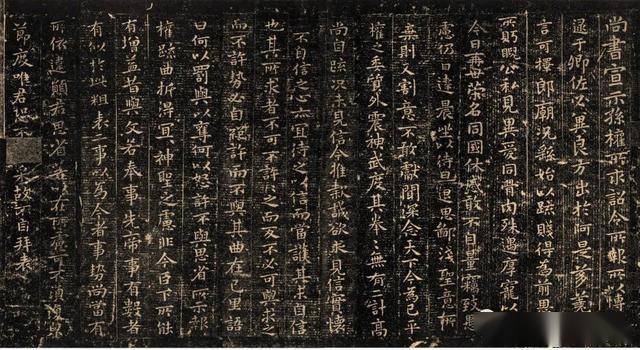 尚書宣示孫權所求詔令所報所以博
逮于卿佐必冀良方出於阿是芻蕘
言可擇郎廟況繇始以疏賤得為前恩
所盱睨公私見異愛同骨肉殊遇厚寵以
今日再世榮名同國休慼敢不自量竊致愚
慮仍日達晨坐以待旦退思鄙淺聖意所
棄則又割意不敢獻聞深念天下今為已平
權之委質外震神武度其拳拳無有二計高
尚自疏況未見信今推款誠欲求見信實懷
不自信之心亦宜待之以信而當護其未自信
也其所求者不可不許許之而反不必可與求之
而不許勢必自絕許而不與其曲在己里語
曰何以罰與以奪何以怒許不與思省所示報
權疏曲折得宜宜神聖之慮非今臣下所能
有增益昔與文若奉事先帝事有數者
有似於此粗表二事以為今者事勢尚當有
所依違願君思省若以在所慮可不須復
節度唯君恐不采故不自拜表